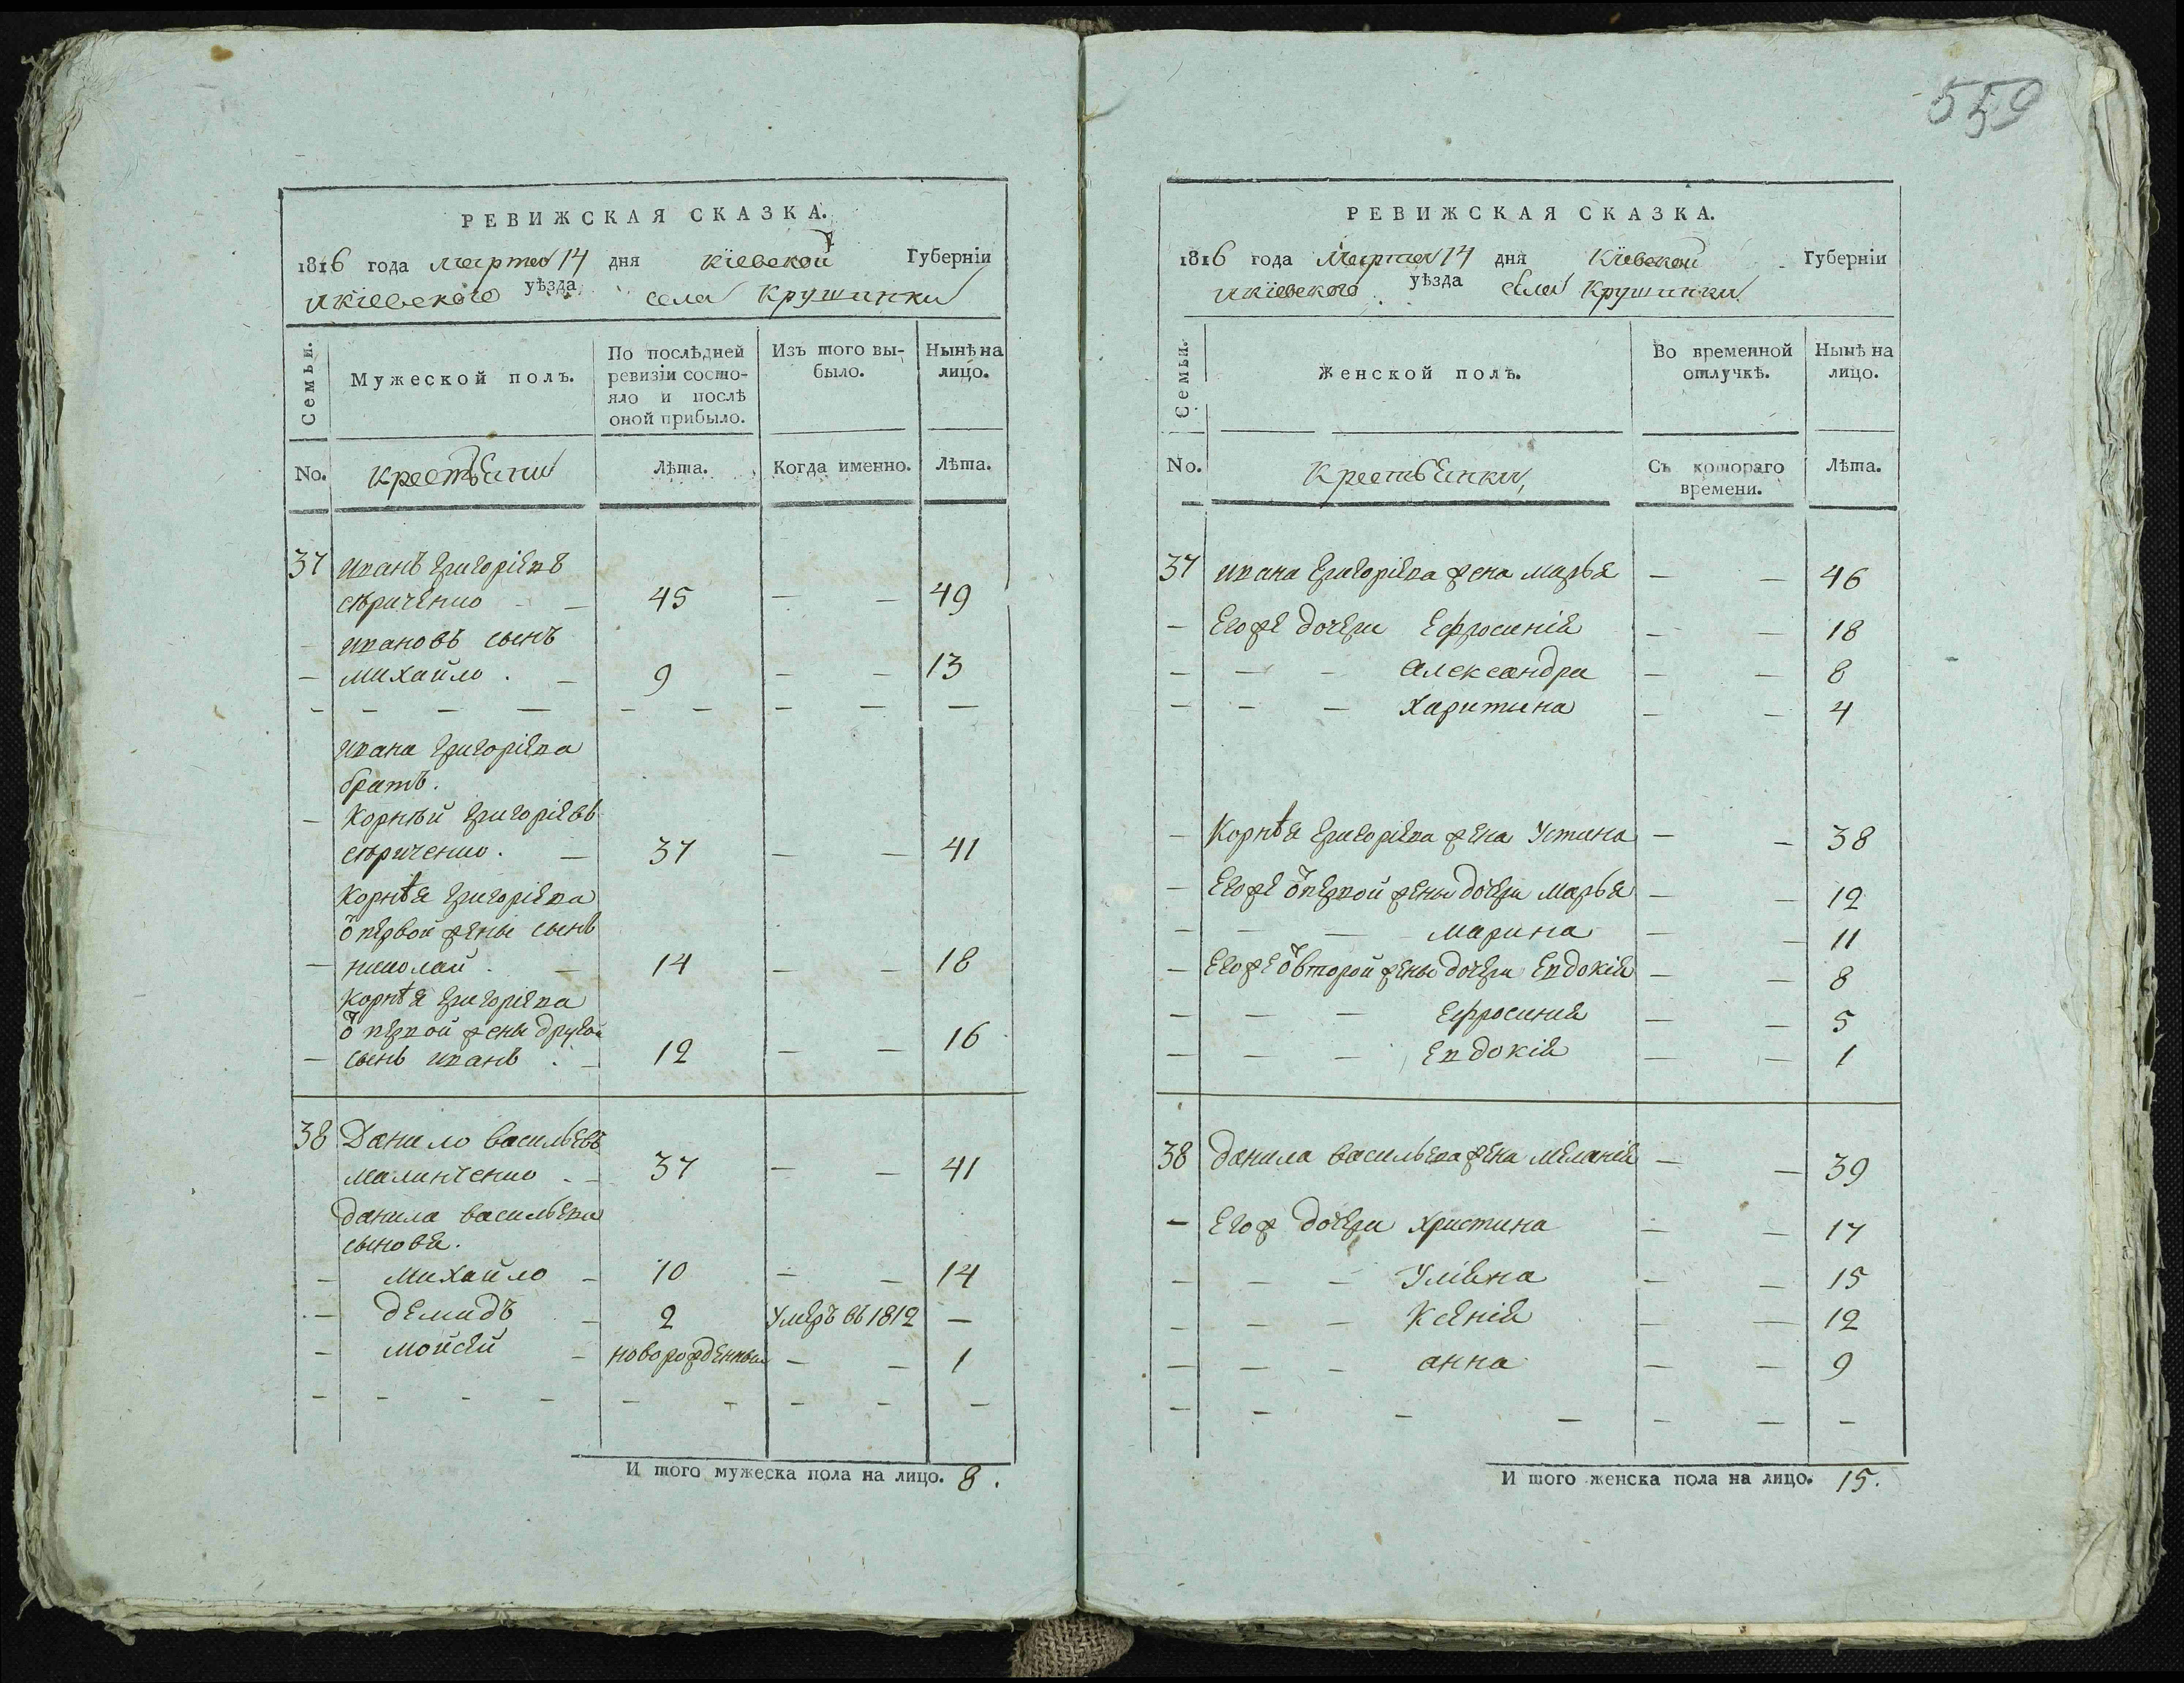 559
РЕВИЖСКАЯ СКАЗКА.
1816 года марта 14 дня Кіевской Губерніи
и кіевского уѣзда села Крушинки
Семьи.
Мужеской полъ.
По послѣдней ревизіи состо-
яло и послѣ оной прибыло.
Изъ того вы-
было.
Нынѣ на лицо.
No.
крестьяни
Лѣта.
Когда именно.
Лѣта.
37 иванъ григоріевъ
сѣриченко - 45 - - 49
ивановъ сынъ
- михайло. - 9 - - 13
- - - - - - - - -
ивана григоріева
братъ.
- корнѣй григоріевъ
сѣриченко. - 37 - - 41
корнѣя григоріева
ѿ первой жены сынъ
- николай. - 14 - - 18
корнѣя григоріева
ѿ первой жены другой
- сынъ иванъ. - 12 - - 16
38 Данило васильевъ
малинченко. - 37 - - 41
данила васильева
сыновя.
- михайло - 10 - - 14
- демидъ - 2 умеръ въ 1812 -
- мойсей - новорожденный - - 1
- - - - - - - - -
И того мужеска пола на лицо. 8.
РЕВИЖСКАЯ СКАЗКА.
1816 года марта 14 дня Кіевской Губерніи
и кіевского уѣзда села Крушинки
Семьи.
Женской полъ.
Во временной
отлучкѣ.
Нынѣ на
лицо.
No.
крестьянки,
Съ котораго
времени.
Лѣта.
37 ивана григоріева жена марья - - 46
- егоже дочери ефросинія - - 18
- - - александра - - 8
- - - харитина - - 4
- корнѣя григоріева жена устина - - 38
- егоже ѿ первой жены дочери марья - - 12
- - - марина - - 11
- егоже ѿ второй жены дочери евдокія - - 8
- - - ефросиния - - 5
- - - евдокія - - 1
38 данила васильева жена меланія - - 39
- егож дочери христина - - 17
- - - уліяна - - 15
- - - ксенія - - 12
- - - анна - - 9
- - - - - - -
И того женска пола на лицо. 15.